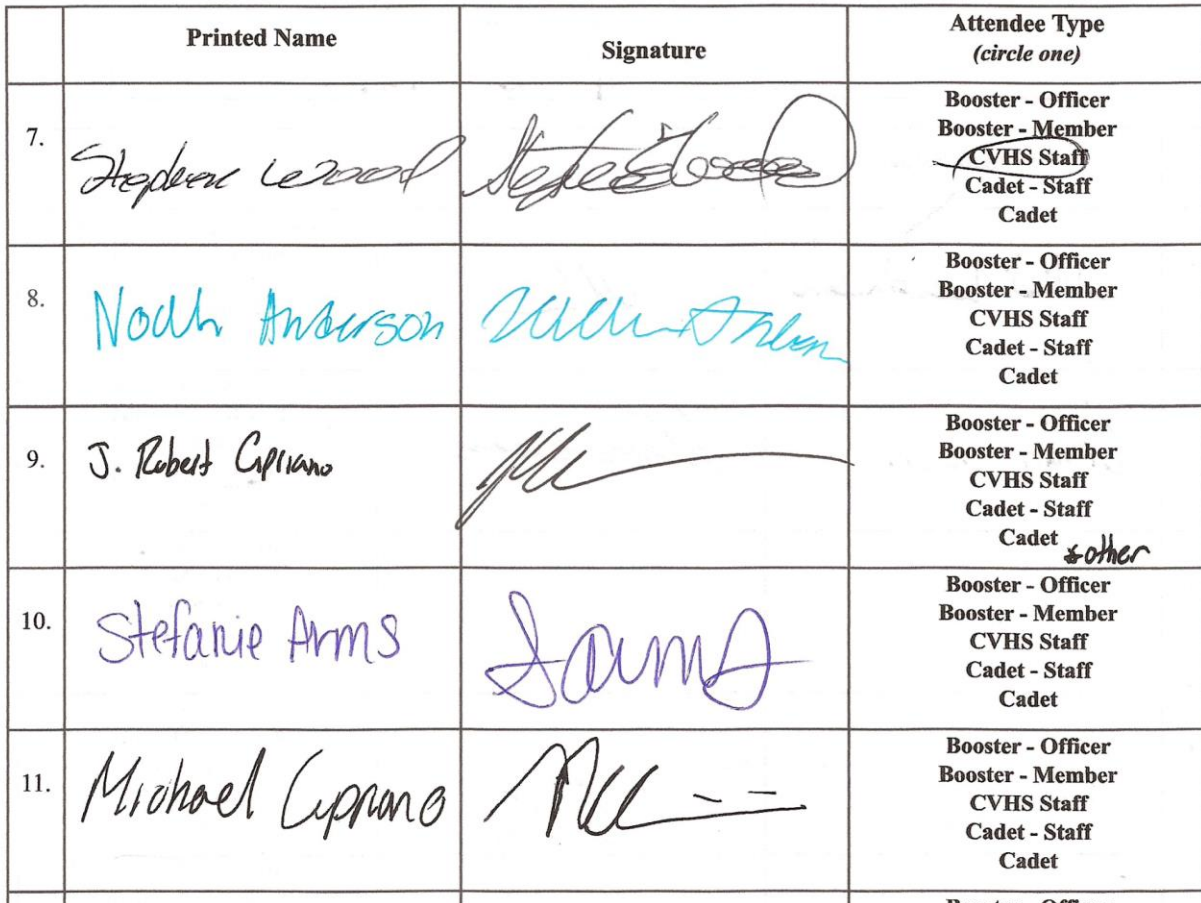 Printed Name
Signature
Attendee Type
(circle one)
7.
Stephen Wood
Booster - Officer
Booster - Member
CVHS Staff
Cadet - Staff
Cadet
8.
Noah Anderson
Booster - Officer
Booster - Member
CVHS Staff
Cadet - Staff
Cadet
9.
J. Robert Cipriano
Booster - Officer
Booster - Member
CVHS Staff
Cadet - Staff
Cadet
*other
10.
Stefanie Arms
SArms
Booster - Officer
Booster - Member
CVHS Staff
Cadet - Staff
Cadet
11.
Michael Cipriano
Booster - Officer
Booster - Member
CVHS Staff
Cadet - Staff
Cadet